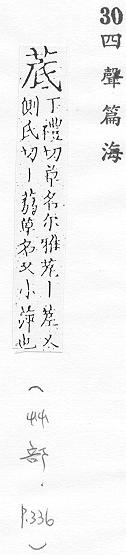 30 四聲篇海
菧
丁禮切草名尔雅苨丨苨又
側氏切丨草名又小萍也
(艸部.P.336)